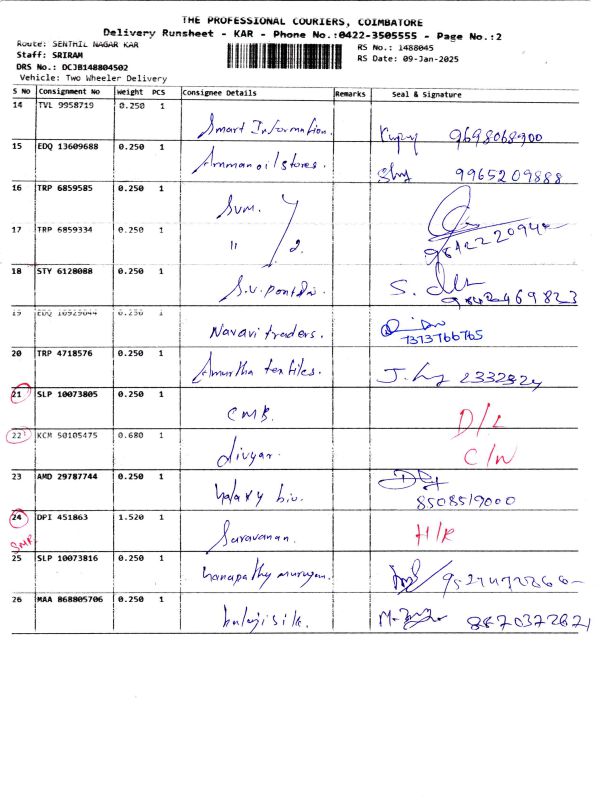 THE PROFESSIONAL COURIERS, COIMBATORE
Delivery Runsheet - KAR - Phone No.:0422-3505555 - Page No.:2
Route: SENTHIL NAGAR KAR
RS No.: 1488045
Staff: SRIRAM
RS Date: 09-Jan-2025
DRS No.: DCJB148804502
Vehicle: Two Wheeler Delivery
S No Consignment No Weight PCS Consignee Details Remarks Seal & Signature
14 TVL 9958719 0.250 1
Smart Information. 9698068900
15 EDQ 13609688 0.250 1
Ammanoil stores. 9965209888
16 TRP 6859585 0.250 1
Sum.
17 TRP 6859334 0.250 1
" 2.
18 STY 6128088 0.250 1
S.V. 9842469823
19 EDQ 10929044 0.250 1
Navavi traders. 7373766765
20 TRP 4718576 0.250 1
Amurtha textiles. 2332324
21 SLP 10073805 0.250 1
CMB. D/L
22 KCM 50105475 0.680 1
divyar. C/W
23 AMD 29787744 0.250 1
galaxy 8508519000
24 DPI 451863 1.520 1
SMR Saravanan. H/R
25 SLP 10073816 0.250 1
Ganapathy murugan.
26 MAA 868805706 0.250 1
balaji silk.